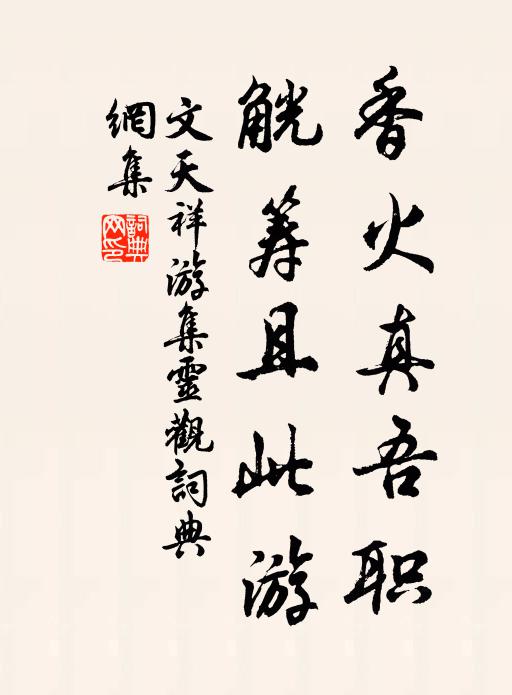 香火真吾职
觥筹且此游
文天祥游集靈觀詞典
網集
詞典
网印